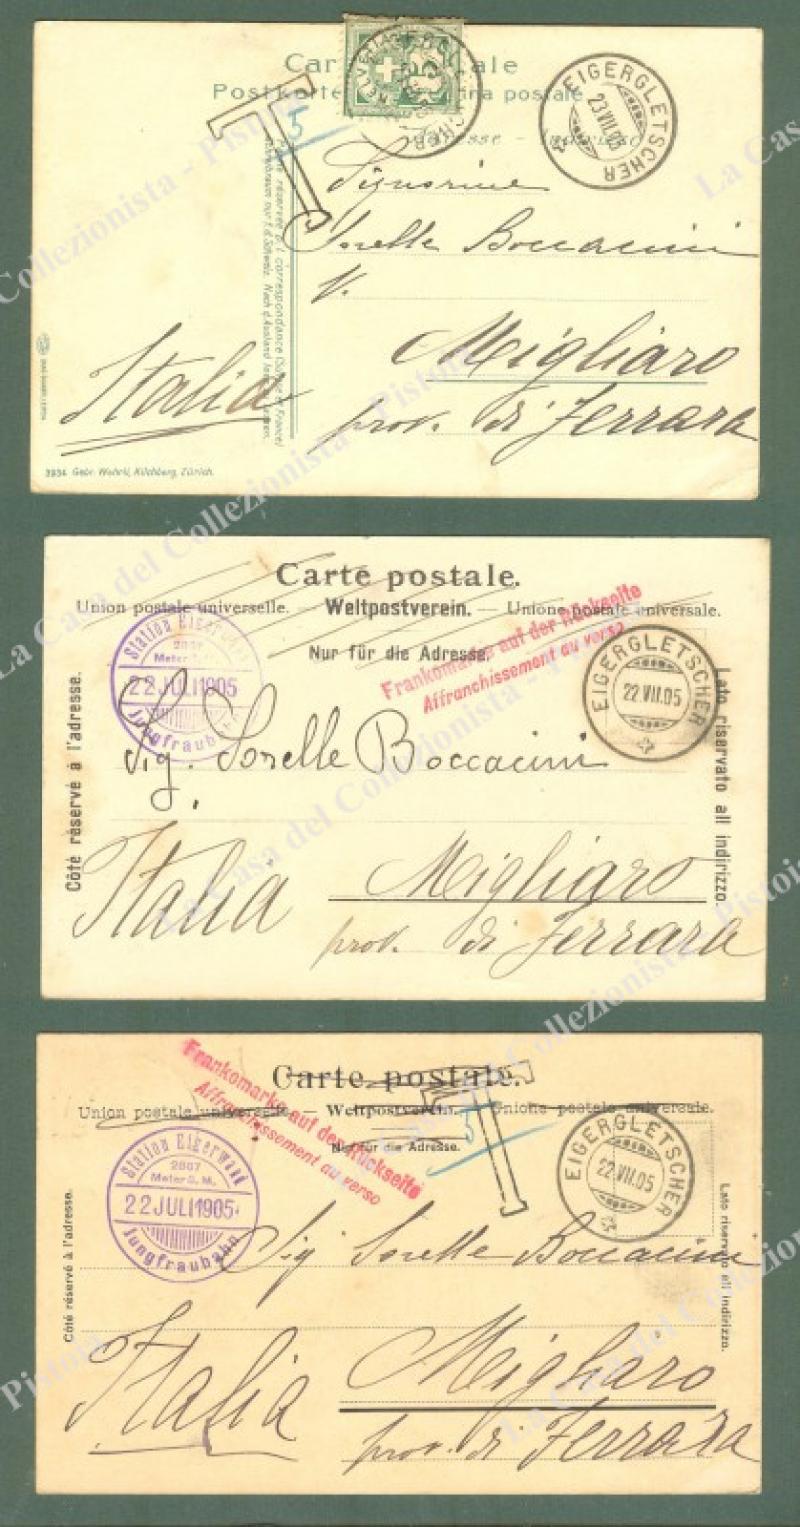 Carte postale
Postkarte
HELVETIA
5
T
5
EIGERGLETSCHER
23.VII.05
Signorine
Sorelle Boccacini
V.
Migliaro
Italia
prov. di Ferrara
3934 Gebr. Wehrli, Kilchberg, Zürich.
Carte postale.
Union postale universelle. — Weltpostverein. — Unione postale universale.
Nur für die Adresse.
Frankomarke auf der Rückseite
Affranchissement au verso
Station Eigerwand
2867
Meter
22 JULI 1905
Jungfraubahn
EIGERGLETSCHER
22.VII.05
Côté réservé à l'adresse.
Lato riservato all indirizzo.
Sig. Sorelle Boccacini
Migliaro
Italia
prov. di Ferrara
Carte postale.
Union postale universelle. — Weltpostverein. — Unione postale universale.
Nur für die Adresse.
Frankomarke auf der Rückseite
Affranchissement au verso
T
5
Station Eigerwand
2867
Meter ü. M.
22 JULI 1905
Jungfraubahn
EIGERGLETSCHER
22.VII.05
Côté réservé à l'adresse.
Lato riservato all indirizzo.
Sig Sorelle Boccacini
Migliaro
Italia
prov. di Ferrara
La Casa del Collezionista - Pistoia